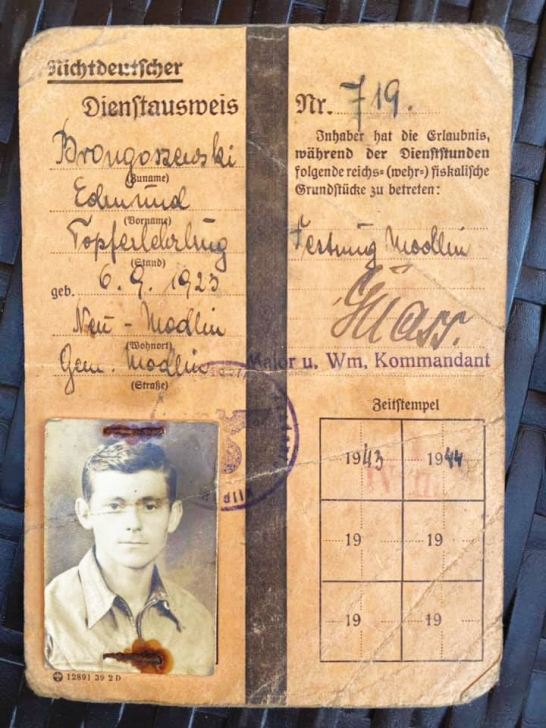 Nichtdeutscher
Dienstausweis
Edmund
(Zuname)
(Vorname)
(Stand)
geb. 6. 9. 1923
Neu - Modlin
(Wohnort)
Gem. Modlin
(Straße)
12891 39 2 D
Nr. 719.
Inhaber hat die Erlaubnis,
während der Dienststunden
folgende reichs- (wehr-) fiskalische
Grundstücke zu betreten:
Festung Modlin
Major u. Wm. Kommandant
Zeitstempel
1943 1944
19 19
19 19